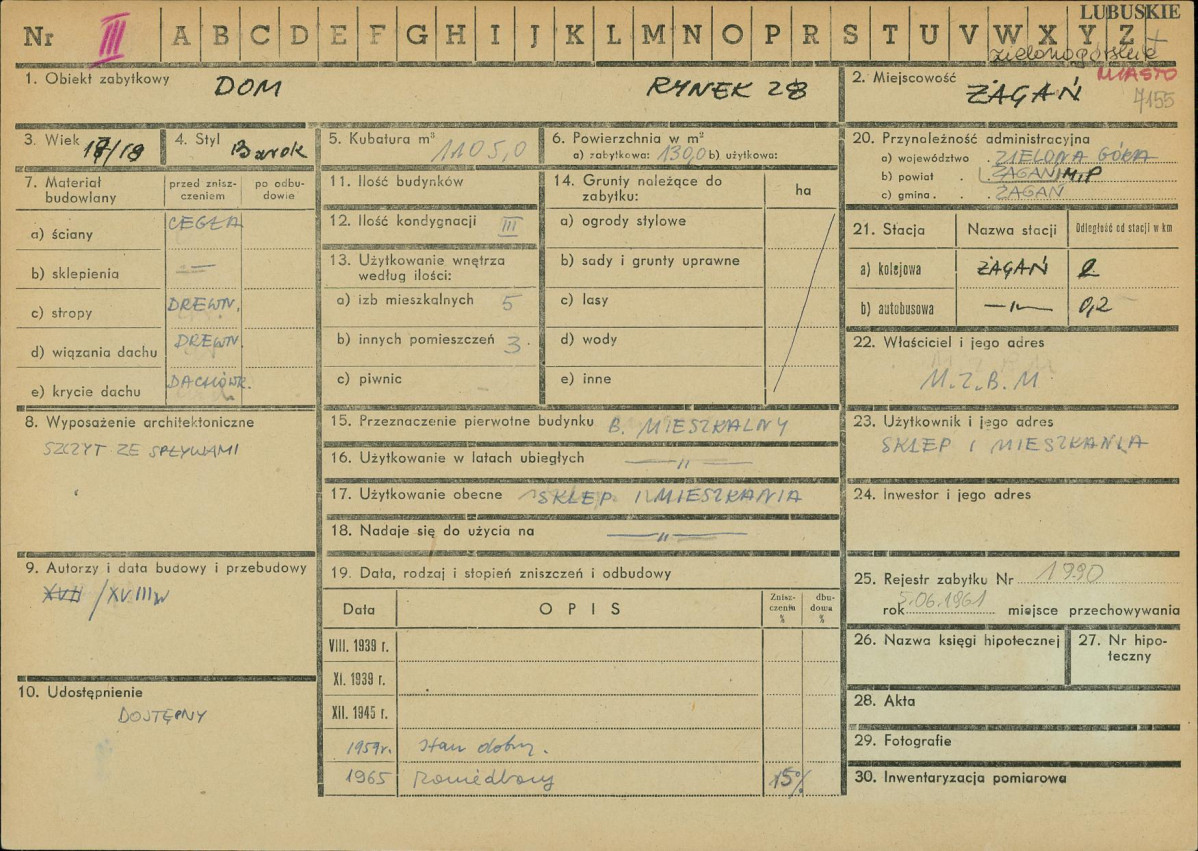 LUBUSKIE
Nr III A B C D E F G H I J K L M N O P R S T U V W X Y Z
zielonogórskie
1. Obiekt zabytkowy DOM RYNEK 28
2. Miejscowość ŻAGAŃ
MIASTO
7155
3. Wiek 17/18
4. Styl Barok
5. Kubatura m³ 1105,0
6. Powierzchnia w m²
a) zabytkowa: 130,0 b) użytkowa:
7. Materiał budowlany
przed zniszczeniem
po odbudowie
a) ściany CEGŁA
b) sklepienia —
c) stropy DREWN.
d) wiązania dachu DREWN.
e) krycie dachu DACHÓWK.
8. Wyposażenie architektoniczne
SZCZYT ZE SPŁYWAMI
9. Autorzy i data budowy i przebudowy
XVII /XVIII w
10. Udostępnienie
DOSTĘPNY
11. Ilość budynków
12. Ilość kondygnacji III
13. Użytkowanie wnętrza
według ilości:
a) izb mieszkalnych 5
b) innych pomieszczeń 3.
c) piwnic -
14. Grunty należące do
zabytku:
ha
a) ogrody stylowe
b) sady i grunty uprawne
c) lasy
d) wody
e) inne
15. Przeznaczenie pierwotne budynku B. MIESZKALNY
16. Użytkowanie w latach ubiegłych —"—
17. Użytkowanie obecne SKLEP I MIESZKANIA
18. Nadaje się do użycia na —"—
19. Data, rodzaj i stopień zniszczeń i odbudowy
Data OPIS Zniszczenia % dbudowa %
VIII. 1939 r.
XI. 1939 r.
XII. 1945 r.
1959r. stan dobry.
1965 15%
20. Przynależność administracyjna
a) województwo . ZIELONA GÓRA
b) powiat . ŻAGAŃ M.P
c) gmina . . ŻAGAŃ
21. Stacja Nazwa stacji Odległość od stacji w km
a) kolejowa ŻAGAŃ 2
b) autobusowa —"— 0,2
22. Właściciel i jego adres
M.Z.B.M
23. Użytkownik i jego adres
SKLEP I MIESZKANIA
24. Inwestor i jego adres
25. Rejestr zabytku Nr 1990
rok 5.06.1961 miejsce przechowywania
26. Nazwa księgi hipotecznej
27. Nr hipoteczny
28. Akta
29. Fotografie
30. Inwentaryzacja pomiarowa